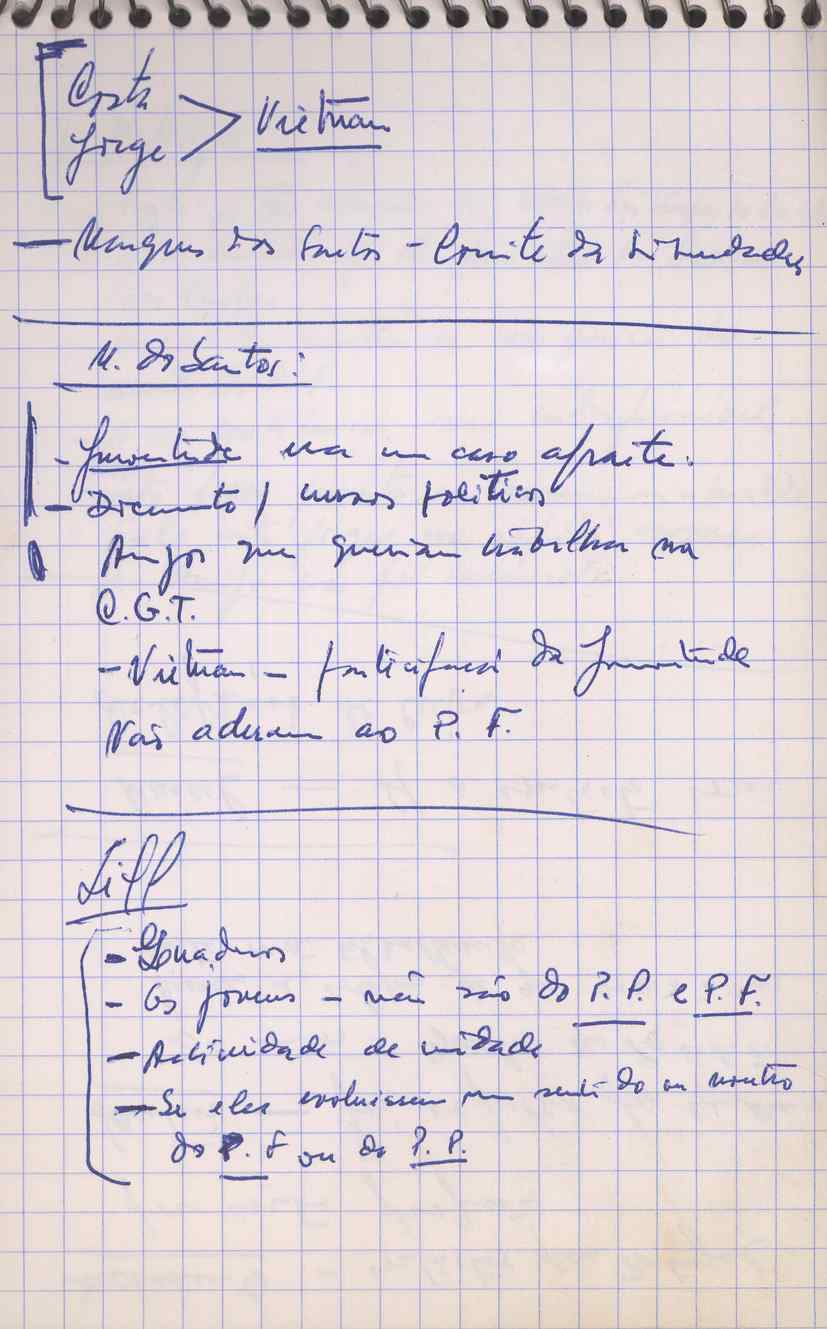 Costa
Jorge > Vietnam
— Marques dos Santos - Comité da
M. dos Santos:
- Juventude era um caso aparte.
- Documento / cursos políticos
que queriam trabalhar na
C.G.T.
- Vietnam - participação da Juventude
Não aderem ao P. F.
Lill
-
- Os jovens - não são do P. P. e P. F.
- Actividade de unidade
- Se eles evoluissem num sentido ou noutro
do P. F ou do P. P.